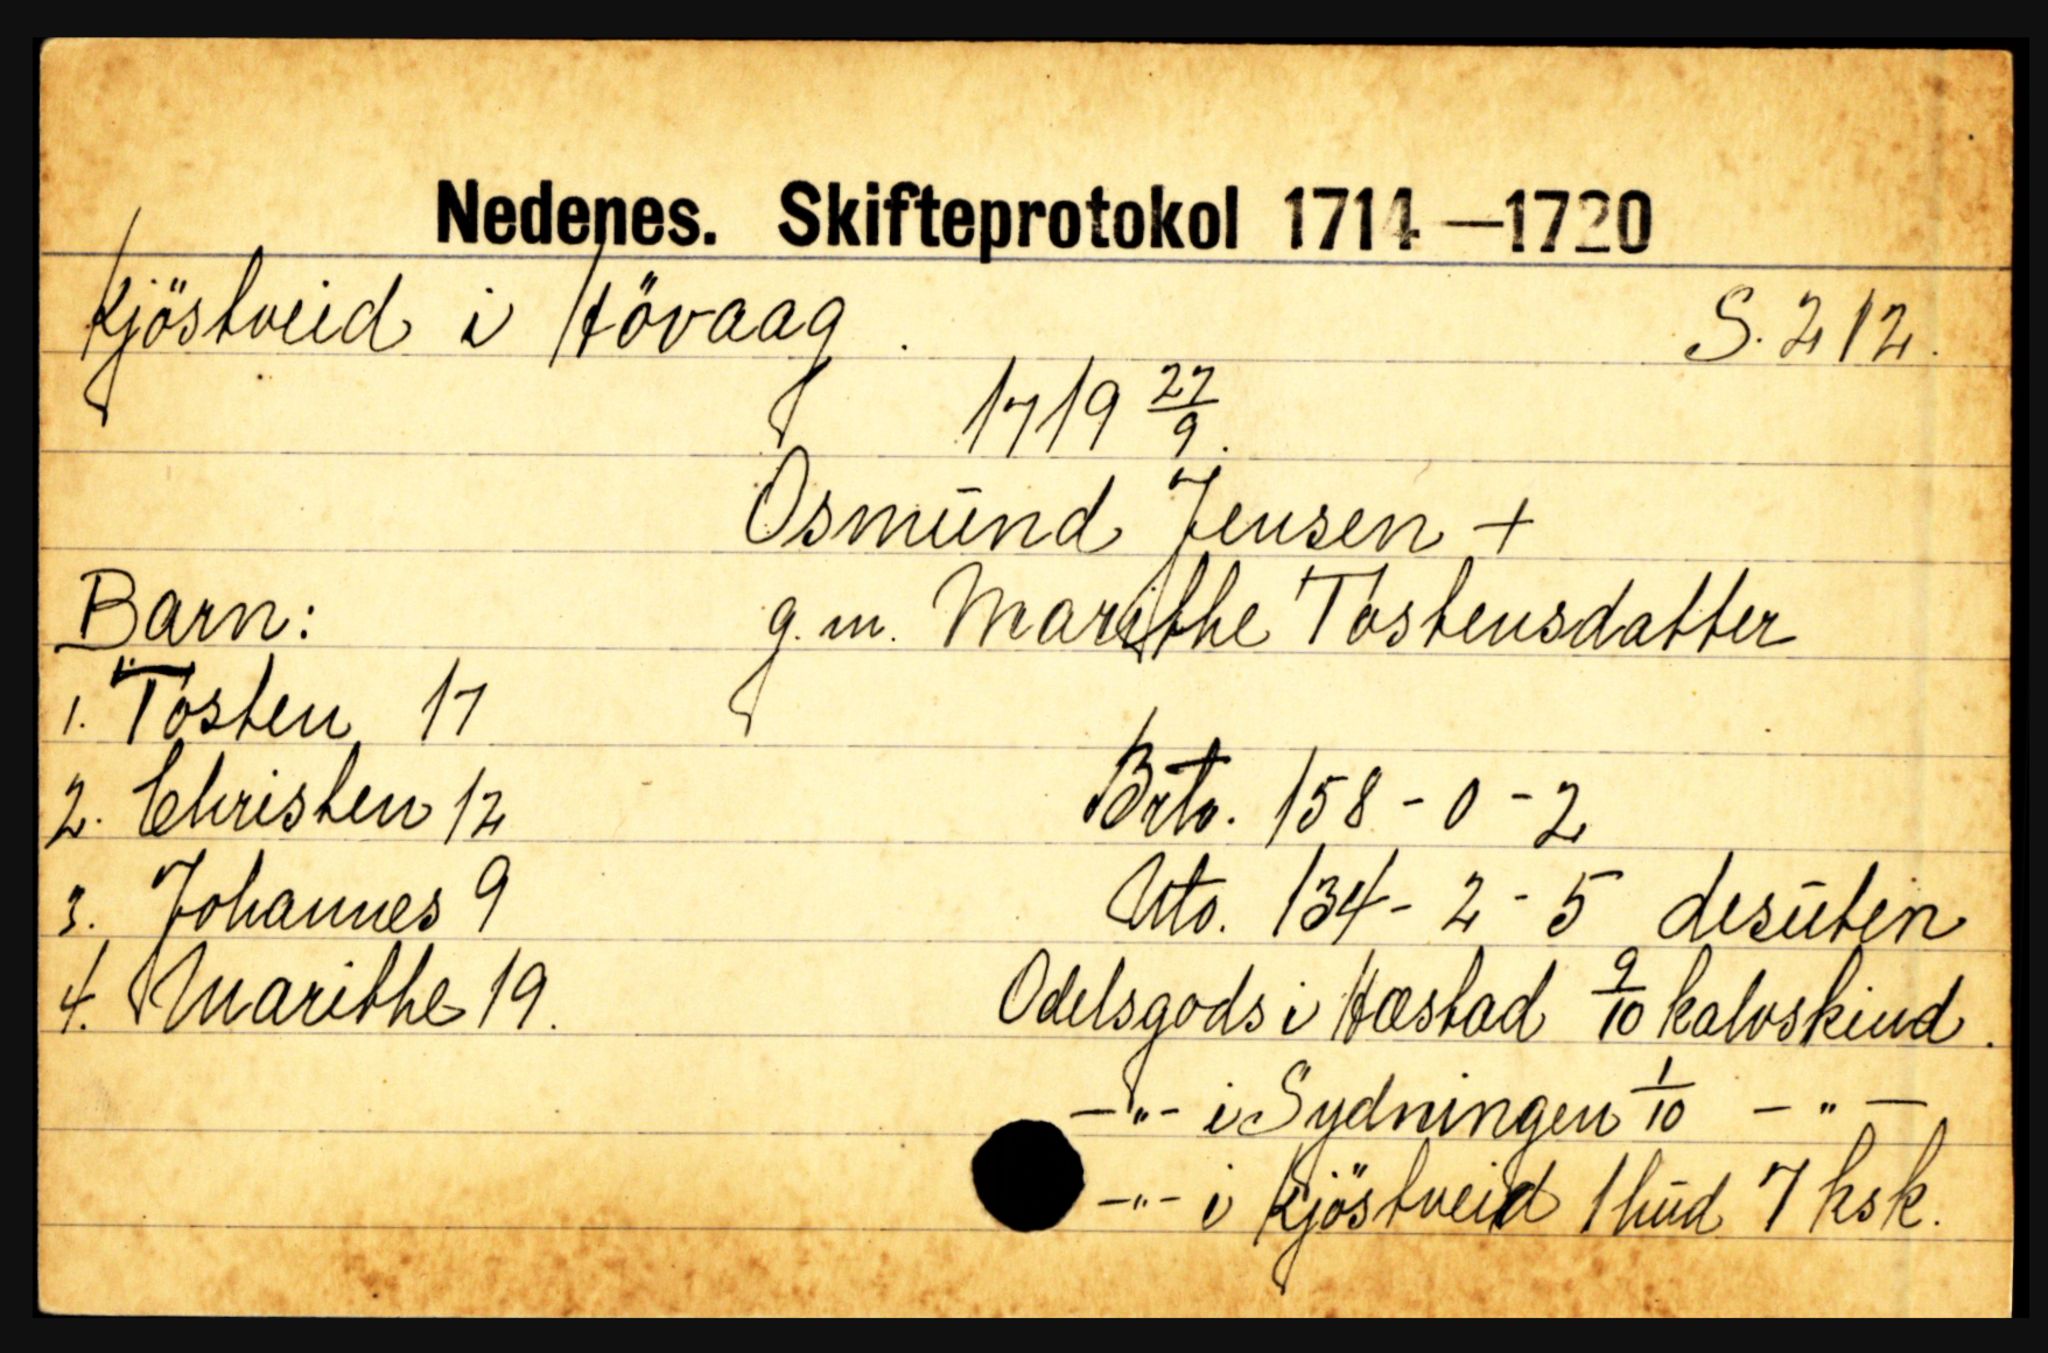 Nedenes. Skifteprotokol 1714—1720
Kjöstveid i Hövaag. S. 212.
1719 27/9.
Osmūnd Jensen +
Barn: g. m. Marithe Tostensdatter
1. Tosten 17
2. Christen 12 Brto. 158 - 0 - 2
3. Johannes 9 Nto. 134 - 2 - 5 desūten
4. Marithe 19. Odelsgods i Hæstad 9/10 kalvskind.
—"— i Sydningen 1/10 —"—
—"— i Kjöstveid 1 hūd 7 ksk.